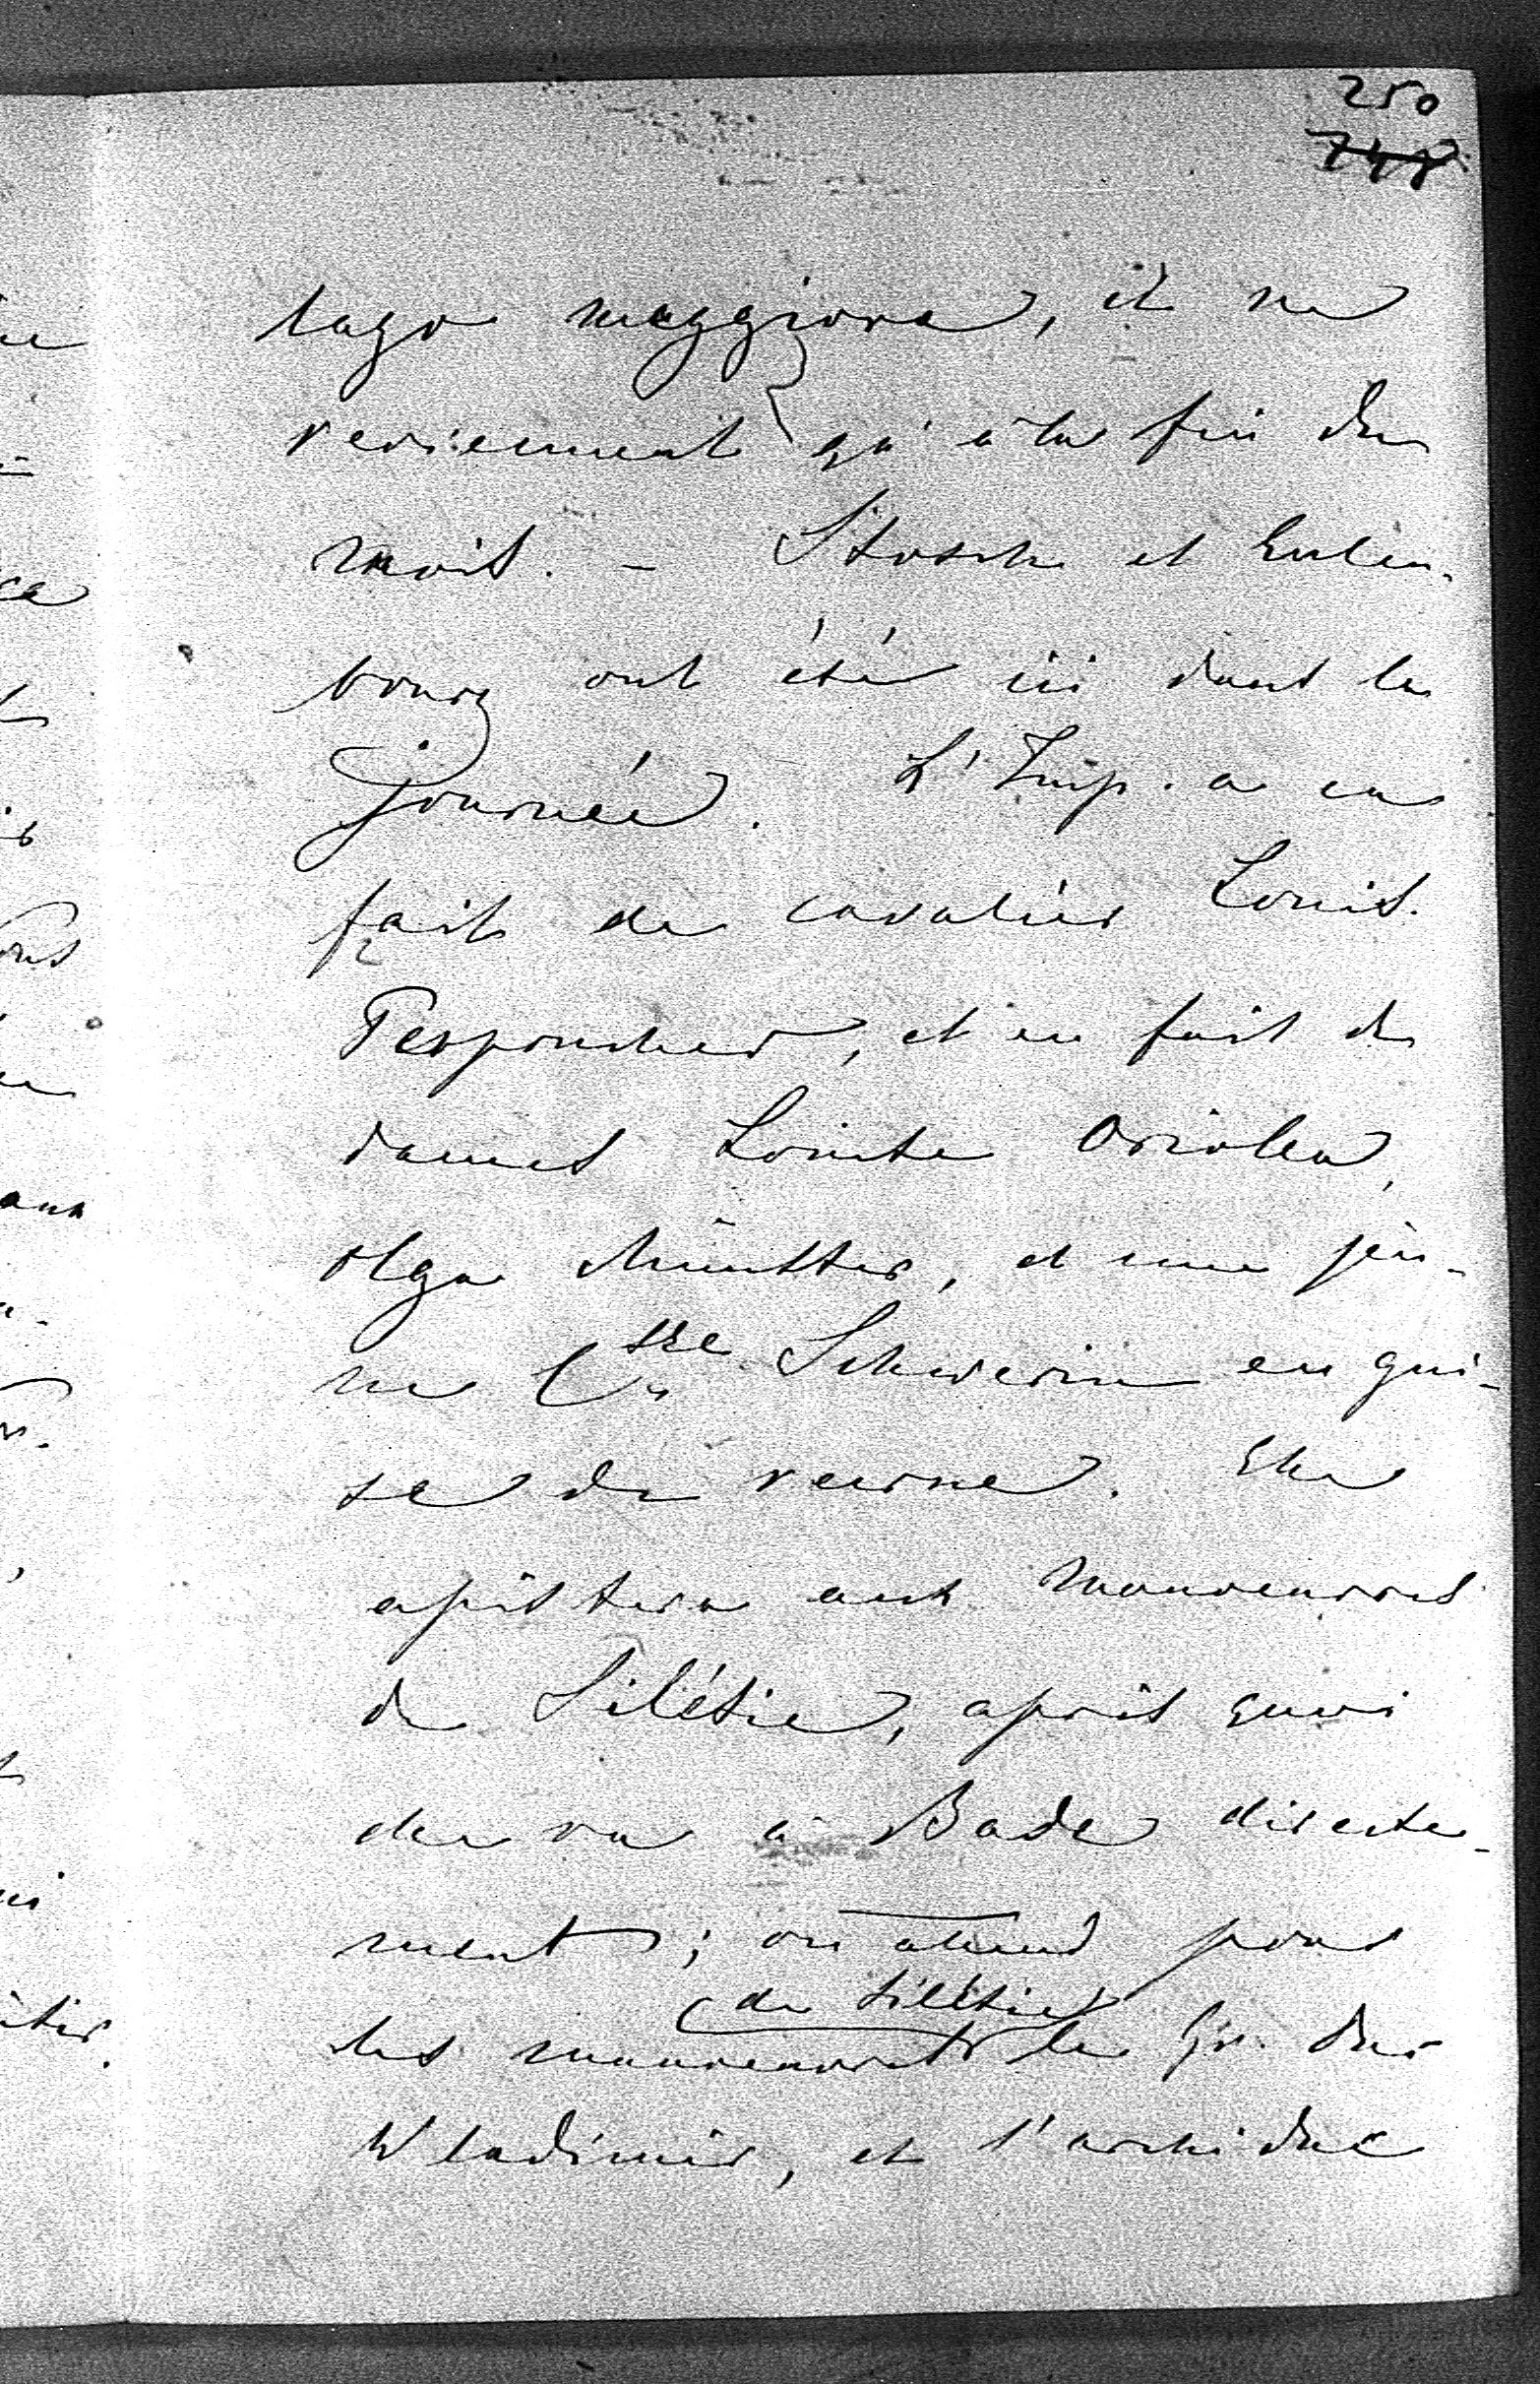 250
748
lago maggiore, et ne
reviennent qu'à la fin du
mois. – Stosch et Eulen-
bourg ont été ici dans la
journée. L'Imp. a en
fait de cavalier Louis
Perponcher, et en fait de
dames Louise Oriolla,
Olga Münster, et une jeu-
ne Ctsse Schwerin en gui-
se de reine. Elle
assistera aux manoeuvres
de Silésie, après quoi
elle va à Bade directe-
ment; on attend pour
les manoeuvres (de Silésie) le Gr. duc
Wladimir, et l'archiduc